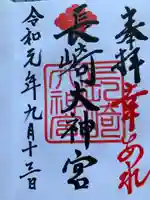 奉拝
幸あれ
長崎大神宮
令和元年九月十三日